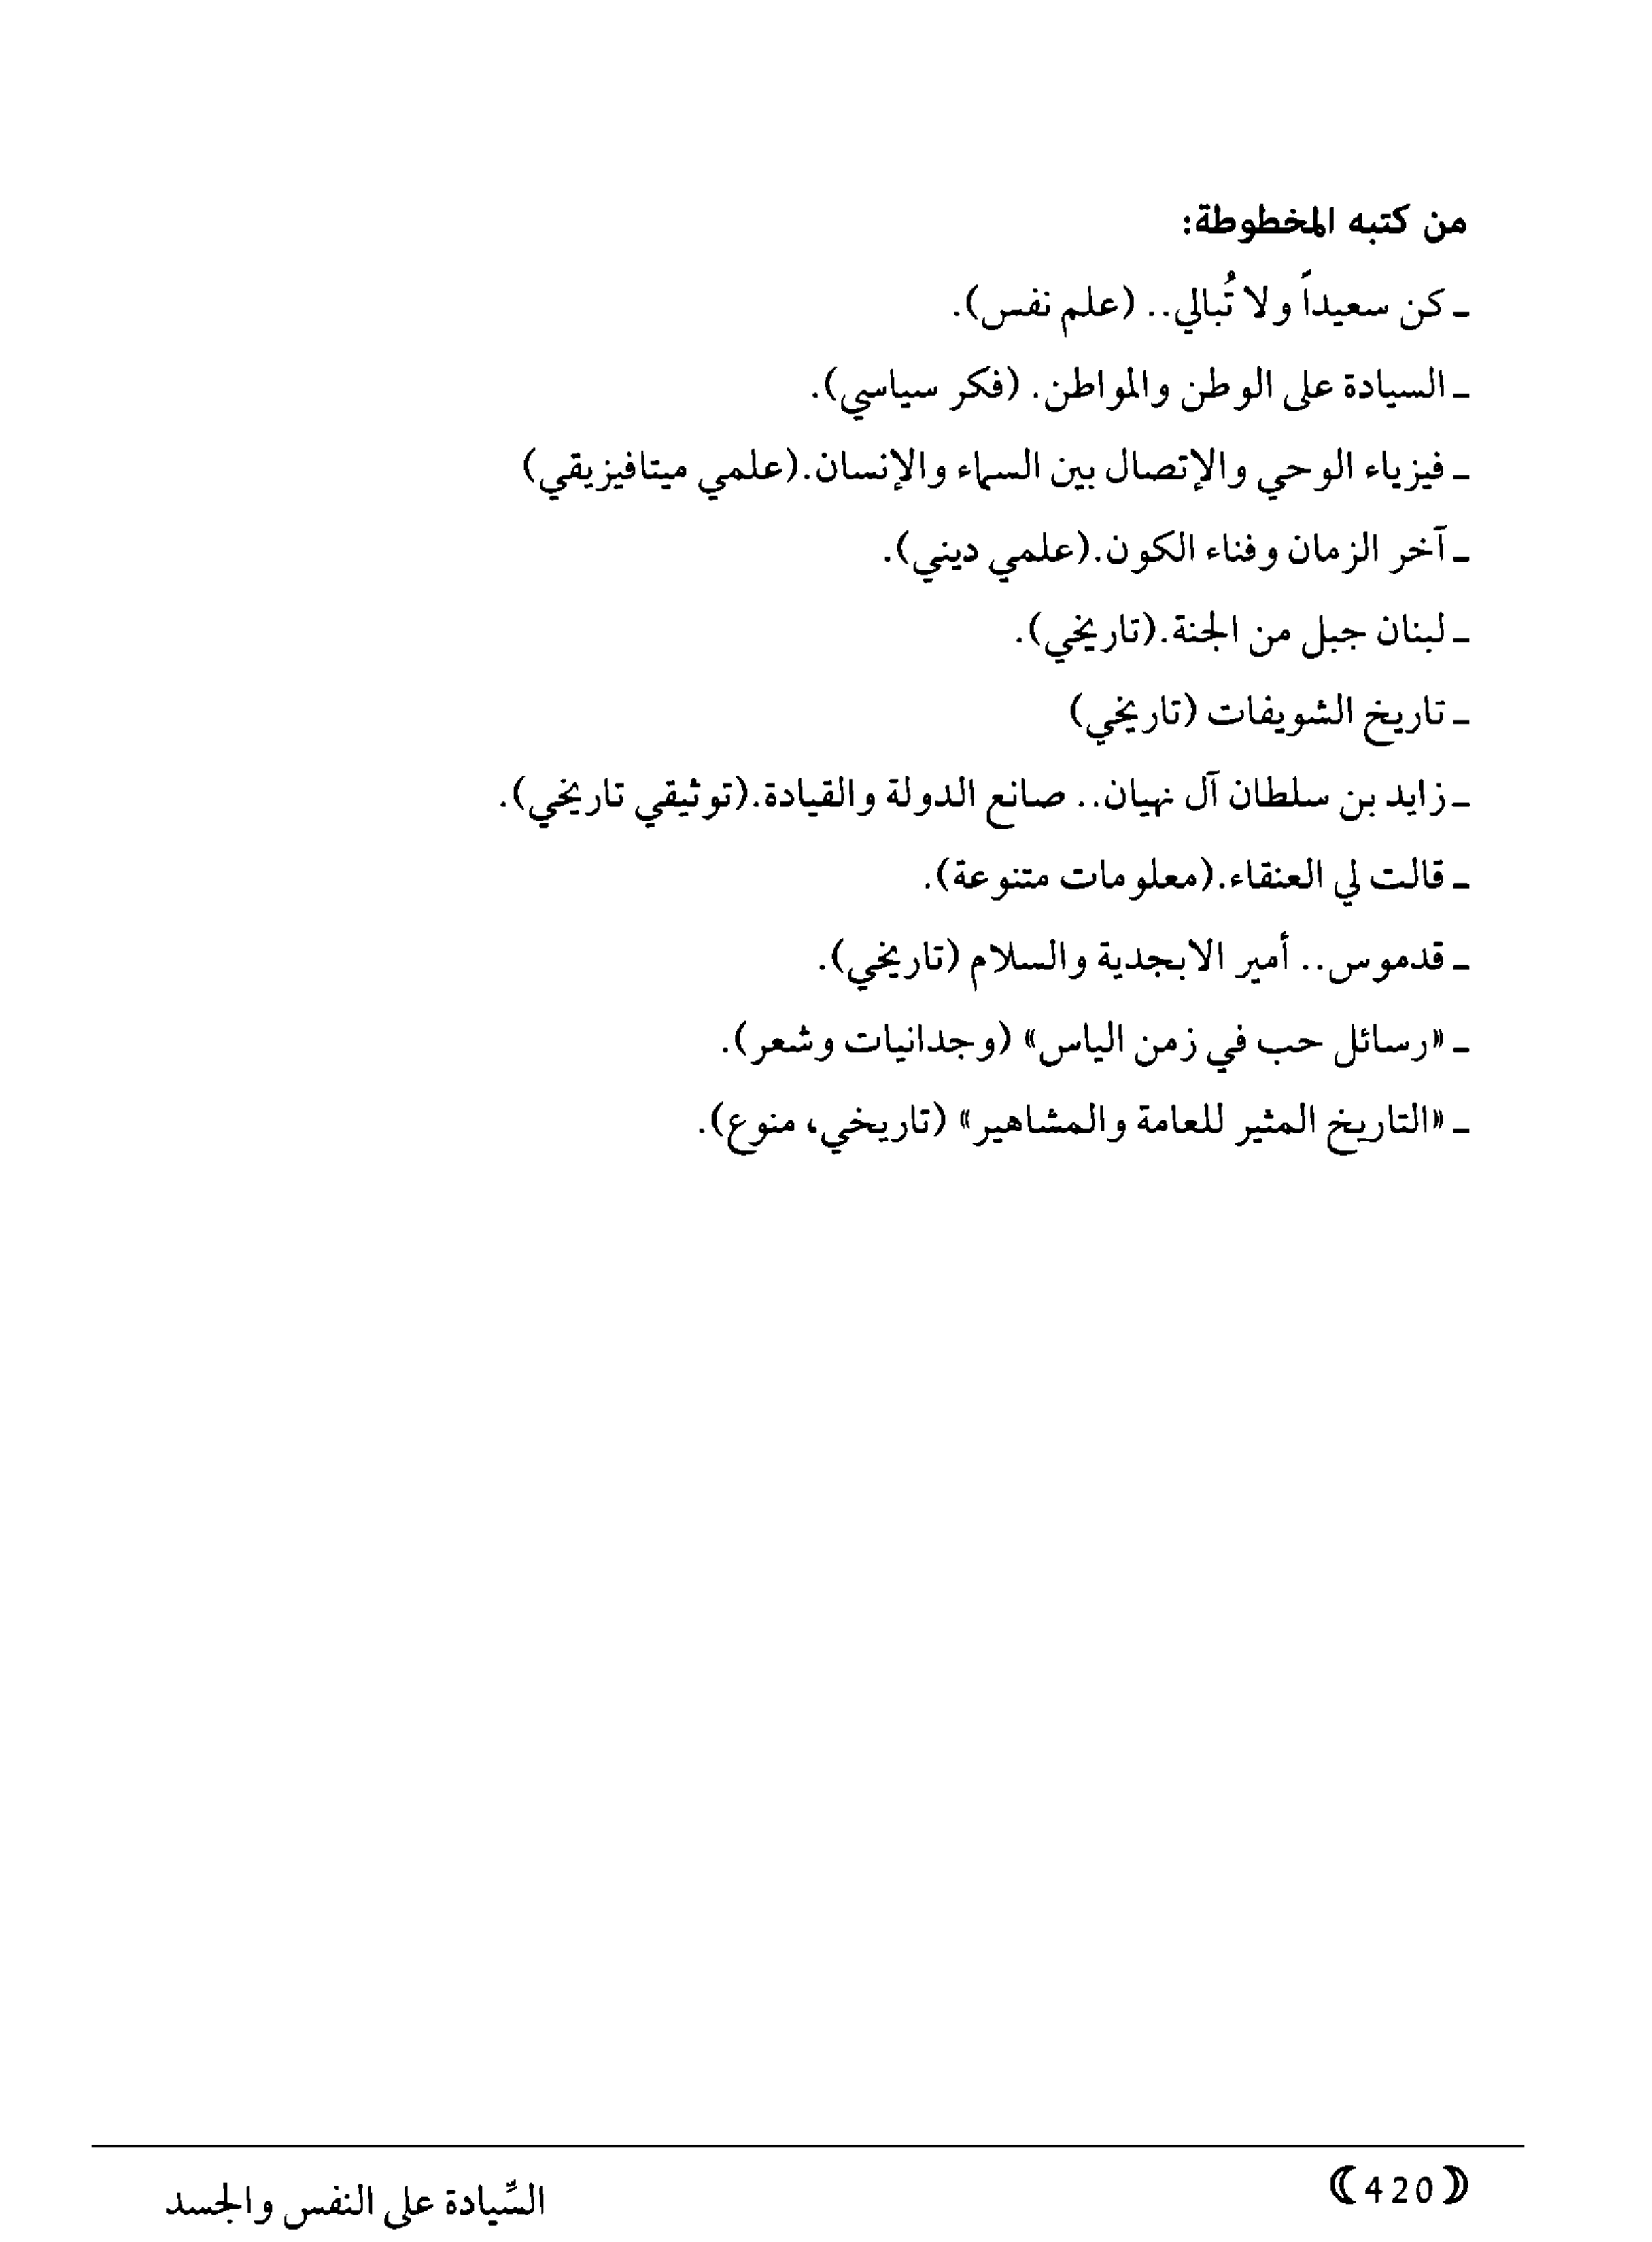 من كتبه المخطوطة:
ـ كن سعيداً ولا تُبالي.. (علم نفس).
ـ السيادة على الوطن والمواطن. (فكر سياسي).
ـ فيزياء الوحي والإتصال بين السماء والإنسان.(علمي ميتافيزيقي)
ـ آخر الزمان وفناء الكون.(علمي ديني).
ـ لبنان جبل من الجنة.(تاريخي).
ـ تاريخ الشويفات (تاريخي)
ـ زايد بن سلطان آل نهيان.. صانع الدولة والقيادة.(توثيقي تاريخي).
ـ قالت لي العنقاء.(معلومات متنوعة).
ـ قدموس.. أمير الابجدية والسلام (تاريخي).
ـ «رسائل حب في زمن الياس» (وجدانيات وشعر).
ـ «التاريخ المثير للعامة والمشاهير» (تاريخي، منوع).
(420)
السِّيادة على النفس والجسد